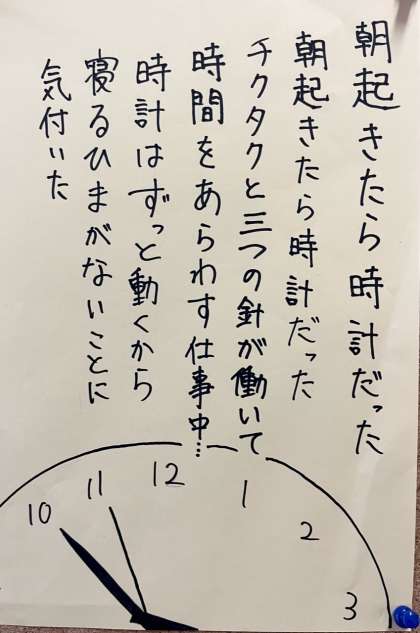 朝起きたら時計だった
朝起きたら時計だった
チクタクと三つの針が働いて
時間をあらわす仕事中…
時計はずっと動くから
寝るひまがないことに
気付いた
10
11
12
1
2
3